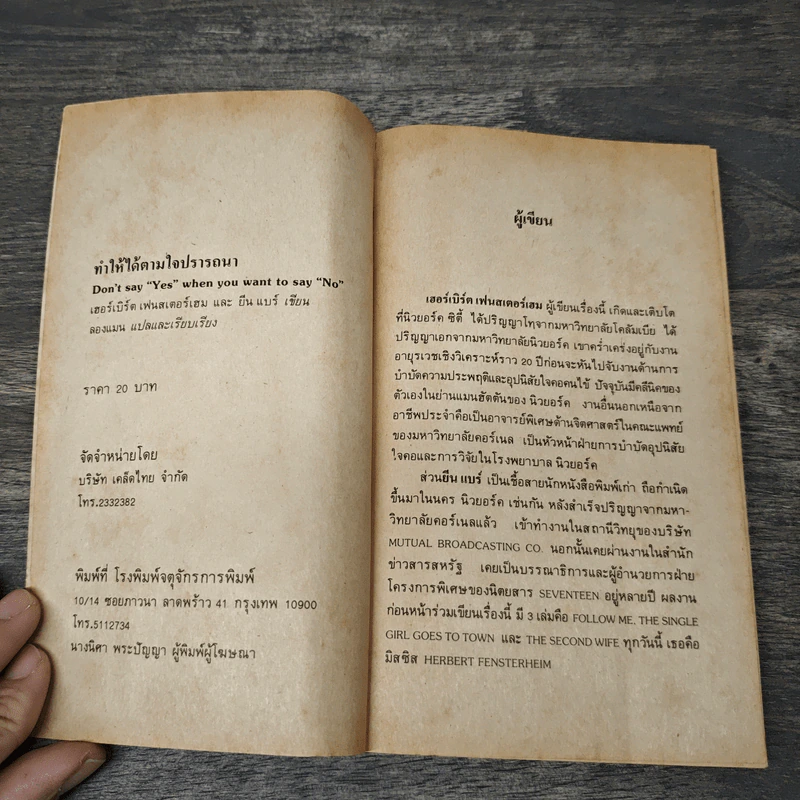 ทำให้ได้ตามใจปรารถนา
Don't say “Yes” when you want to say “No”
เฮอร์เบิร์ต เฟนสเตอร์เฮม และ ยีน แบร์ เขียน
ลองแมน แปลและเรียบเรียง
ราคา 20 บาท
จัดจำหน่ายโดย
บริษัท เคล็ดไทย จำกัด
โทร.2332382
พิมพ์ที่ โรงพิมพ์จตุจักรการพิมพ์
10/14 ซอยภาวนา ลาดพร้าว 41 กรุงเทพ 10900
โทร.5112734
นางนิศา พระปัญญา ผู้พิมพ์ผู้โฆษณา
ผู้เขียน
เฮอร์เบิร์ต เฟนสเตอร์เฮม ผู้เขียนเรื่องนี้ เกิดและเติบโต
ที่นิวยอร์ค ซิตี้ ได้ปริญญาโทจากมหาวิทยาลัยโคลัมเบีย ได้
ปริญญาเอกจากมหาวิทยาลัยนิวยอร์ค เขาคร่ำเคร่งอยู่กับงาน
อายุรเวชเชิงวิเคราะห์ราว 20 ปีก่อนจะหันไปจับงานด้านการ
บำบัดความประพฤติและอุปนิสัยใจคอคนไข้ ปัจจุบันมีคลีนิคของ
ตัวเองในย่านแมนฮัตตันของ นิวยอร์ค งานอื่นนอกเหนือจาก
อาชีพประจำคือเป็นอาจารย์พิเศษด้านจิตศาสตร์ในคณะแพทย์
ของมหาวิทยาลัยคอร์เนล เป็นหัวหน้าฝ่ายการบำบัดอุปนิสัย
ใจคอและการวิจัยในโรงพยาบาล นิวยอร์ค
ส่วนยีน แบร์ เป็นเชื้อสายนักหนังสือพิมพ์เก่า ถือกำเนิด
ขึ้นมาในนคร นิวยอร์ค เช่นกัน หลังสำเร็จปริญญาจากมหา-
วิทยาลัยคอร์เนลแล้ว เข้าทำงานในสถานีวิทยุของบริษัท
MUTUAL BROADCASTING CO. นอกนั้นเคยผ่านงานในสำนัก
ข่าวสารสหรัฐ เคยเป็นบรรณาธิการและผู้อำนวยการฝ่าย
โครงการพิเศษของนิตยสาร SEVENTEEN อยู่หลายปี ผลงาน
ก่อนหน้าร่วมเขียนเรื่องนี้ มี 3 เล่มคือ FOLLOW ME, THE SINGLE
GIRL GOES TO TOWN และ THE SECOND WIFE ทุกวันนี้ เธอคือ
มิสซิส HERBERT FENSTERHEIM